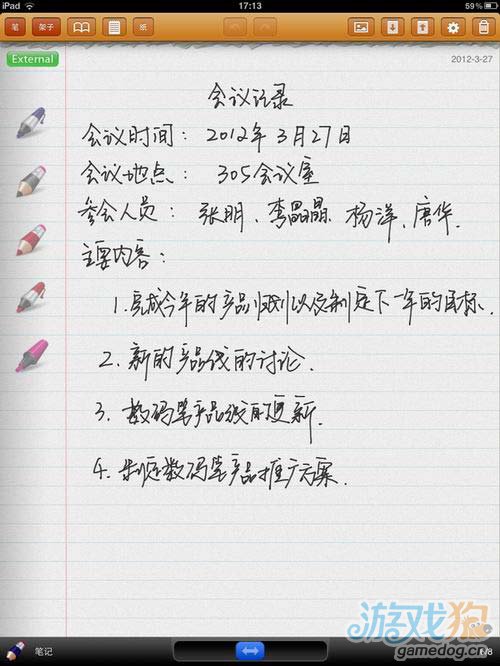 iPad 17:13 59%
笔 架子 纸
External 2012-3-27
会议记录
会议时间： 2012年3月27日
会议地点： 305会议室
参会人员： 张明、李晶晶、杨洋、唐华.
主要内容：
1.完成今年的产品规划以及制定下一年的目标.
2. 新的产品线的讨论.
3. 数码笔产品线的更新.
4. 制定数码笔产品推广方案.
游戏狗
笔记 6/8
gamedog.cn